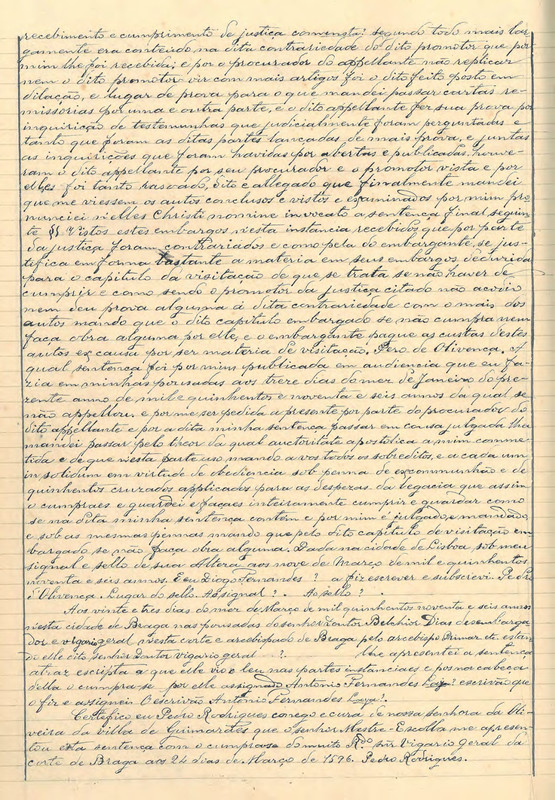 recebimento e cumprimento de justiça comensta; segundo todo mais lar
gamente era conteudo na dita contrariedade do dito promotor que por
mim lhe foi recebida; e por o procurador do appellante não replicar
nem o dito promotor vir com mais artigos foi o dito feito posto em
dilação, e lugar de prova para o que mandei passar cartas re-
missorias por uma e outra parte, e o dito appellante fez sua prova por
inquirição de testemunhas que judicialmente foram perguntadas e
tanto que foram as ditas partes lançadas de mais prova, e juntas
as inquirições que foram havidas por abertas e publicadas, houve-
ram o dito appellante por seu procurador e o promotor vista e por
elles foi tanto rasoado, dito e allegado que finalmente mandei
que me viessem os autos conclusos e vistos e examinados por mim pro
nunciei n'elles Christi nomine invocato a sentença final seguin
te §§ Vistos estes embargos n'esta instancia recebidos, que por parte
da justiça foram contrariados e como pela do embargante se jus-
tifica em forma bastante a materia em seus embargos deduzida
para o capitulo da visitação de que se trata se não haver de
cumprir e como sendo o promotor da justiça citado não acodiu
nem deu prova alguma á dita contrariedade com o mais dos
autos mando que o dito capitulo embargado se não cumpra nem
faça obra alguma por elle, e o embargante pague as custas d'estes
autos ex causa por ser materia de visitação. Pero de Olivença. A
qual sentença foi por mim publicada em audiencia que eu fa-
zia em minhas pousadas aos treze dias do mez de Janeiro do pre-
zente anno de mil e quinhentos e noventa e seis annos da qual se
não appellou. e por me ser pedida a presente por parte do procurador do
dito appellante e por a dita minha sentença passar em causa julgada lha
mandei passar pelo theor da qual auctoritate apostolica a mim comme-
tida e de que n'esta parte uso mando a vos todos os sobreditos, e a cada um
in solidum em virtude de obediencia sob penna de excommunhão e de
quinhentos cruzados applicados para as despezas da legacia que assim
o cumpraes e guardei e façaes inteiramente cumprir e guardar como
se na dita minha sentença contem e por mim é julgado, e mandado
e sob as mesmas pennas mando que pelo dito capitulo de visitação em
bargado se não faça obra alguma. Dada na cidade de Lisboa, sob meu
signal e sello de sua aos nove de Março de mil e quinhentos
noventa e seis annos. E eu Diogo Fernandes ? a fiz escrever e subscrevi. Pedro
d'Olivença. Lugar do sello. As signal ? . Ao sello ? .
Aos vinte e tres dias do mez de Março de mil quinhentos noventa e seis annos
n'esta cidade de Braga nas pousadas do senhor Doutor Belchior Dias desembarga
dor e vigario geral n'esta corte e arcebispado de Braga pelo arcebispo Primaz etc. estan
do elle dito senhor Doutor vigario geral ?. lhe apresentei a sentença
atraz escripta a que elle viu e leu nas partes instanciaes e pos na cabeça
della o cumpra-se por elle assignado Antonio Fernandes Laya? escrivão que
o fiz e assignei O escrivão Antonio Fernandes Laya?.
Certefico eu Pedro Rodrigues conego e cura de nossa senhora da Oli
veira da villa de Guimarães que o senhor Mestre-Escolla me apresen-
tou esta sentença com o cumpra-se do muito R.do snr Vigario Geral da
corte de Braga aos 24 dias de Março de 1596. Pedro Rodrigues.